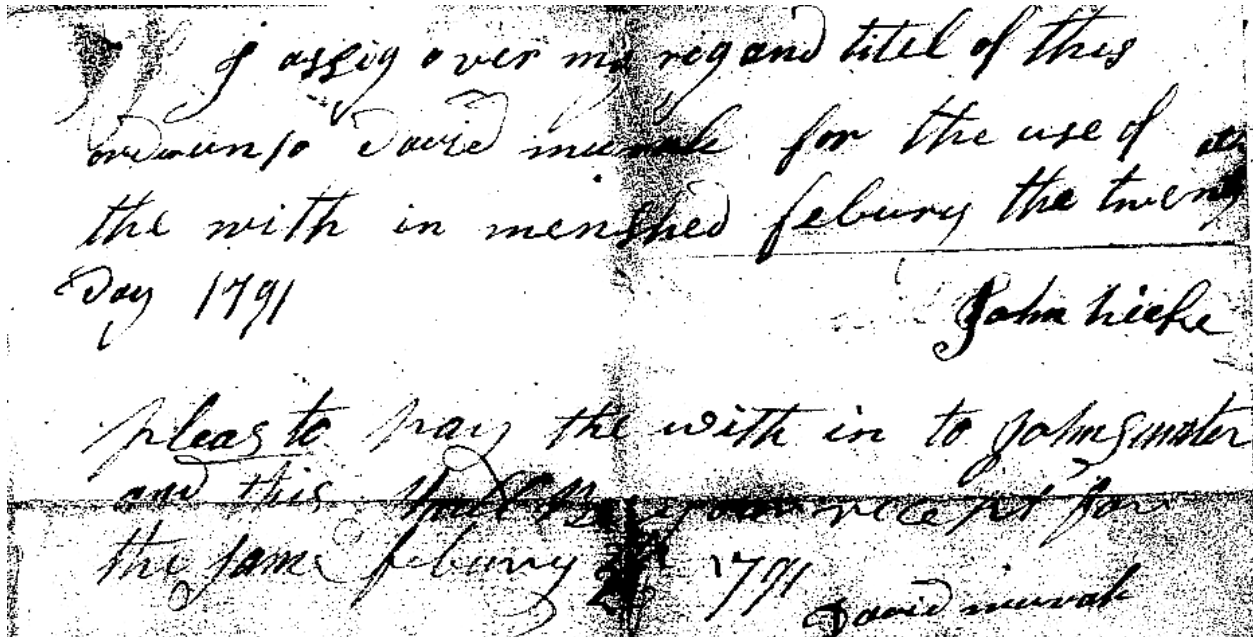 I assig over my rig and titel of this
David murak for the use of
the with in menshed febury the twenty
Day 1791
John hicke
pleas to pay the with in to John
and this shall be your recept for
the same febury 1791
David murak